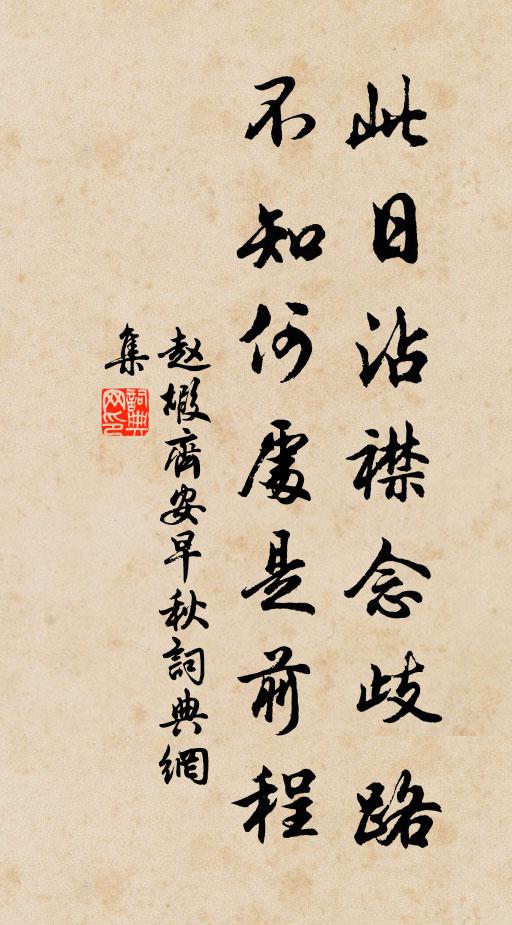 此日沾襟念歧路
不知何處是前程
赵嘏齊安早秋詞典網
集
詞典
网印